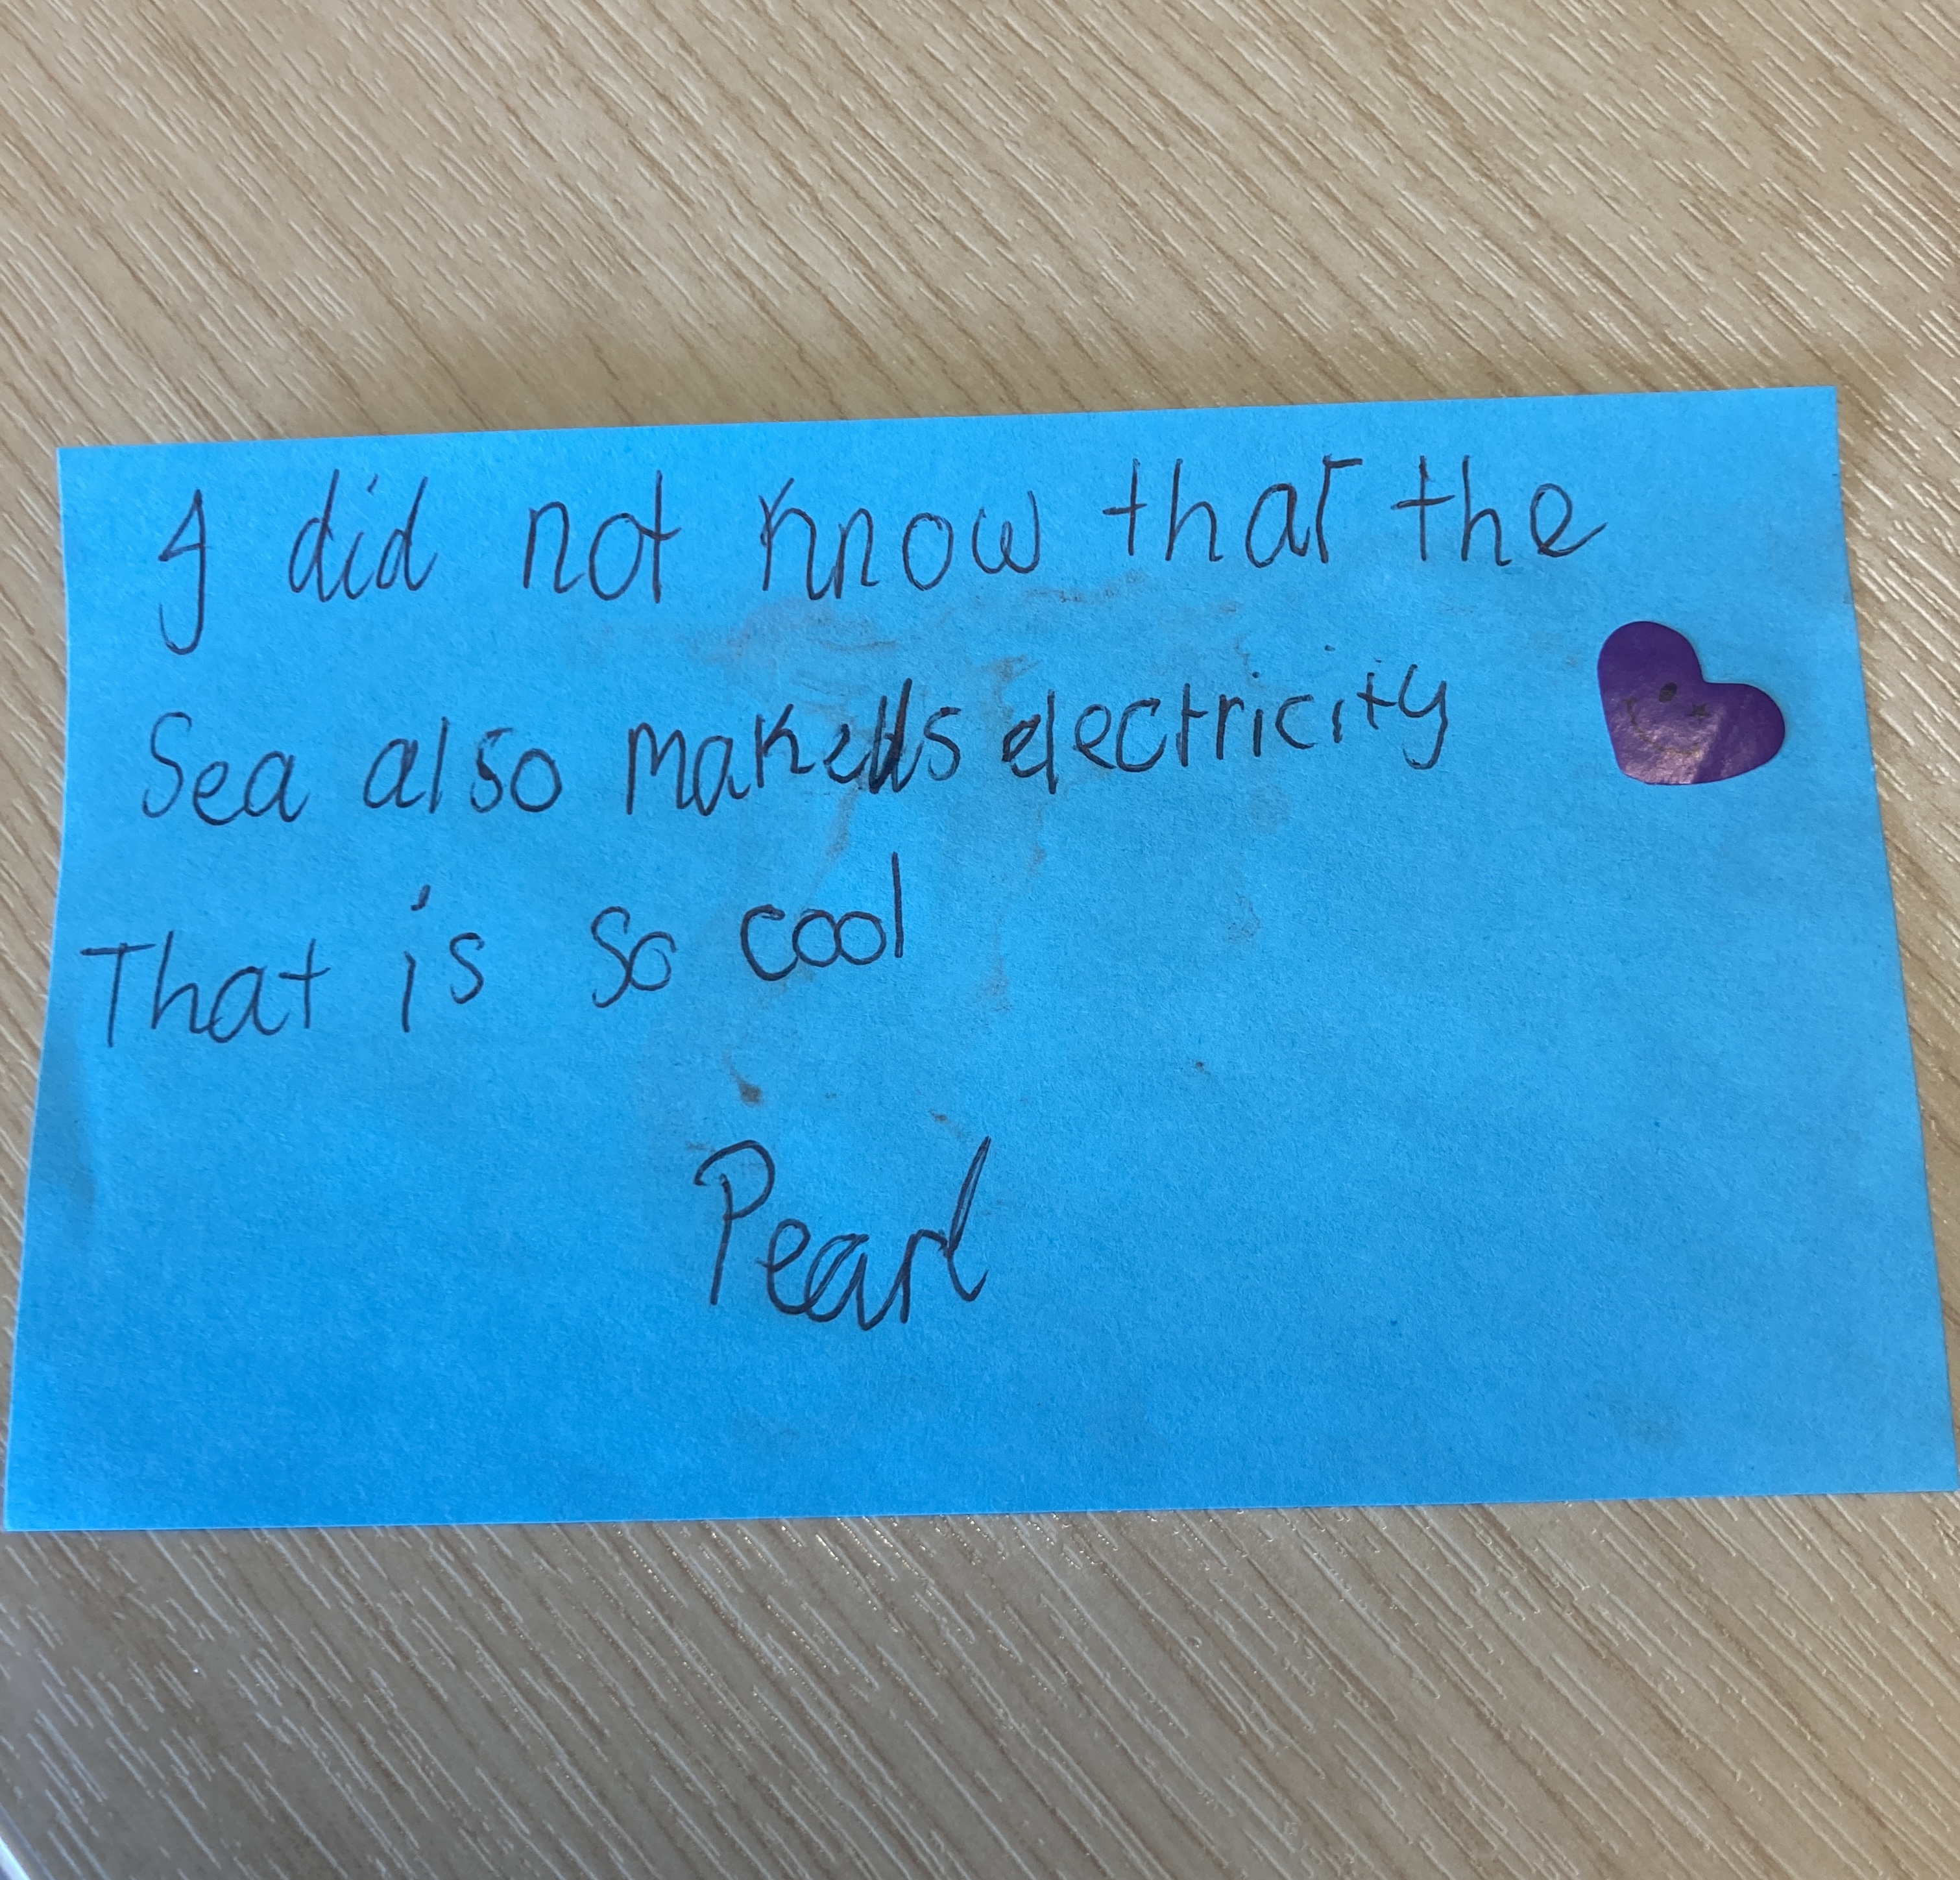 I did not know that the
Sea also makes electricity
That is so cool
Pearl